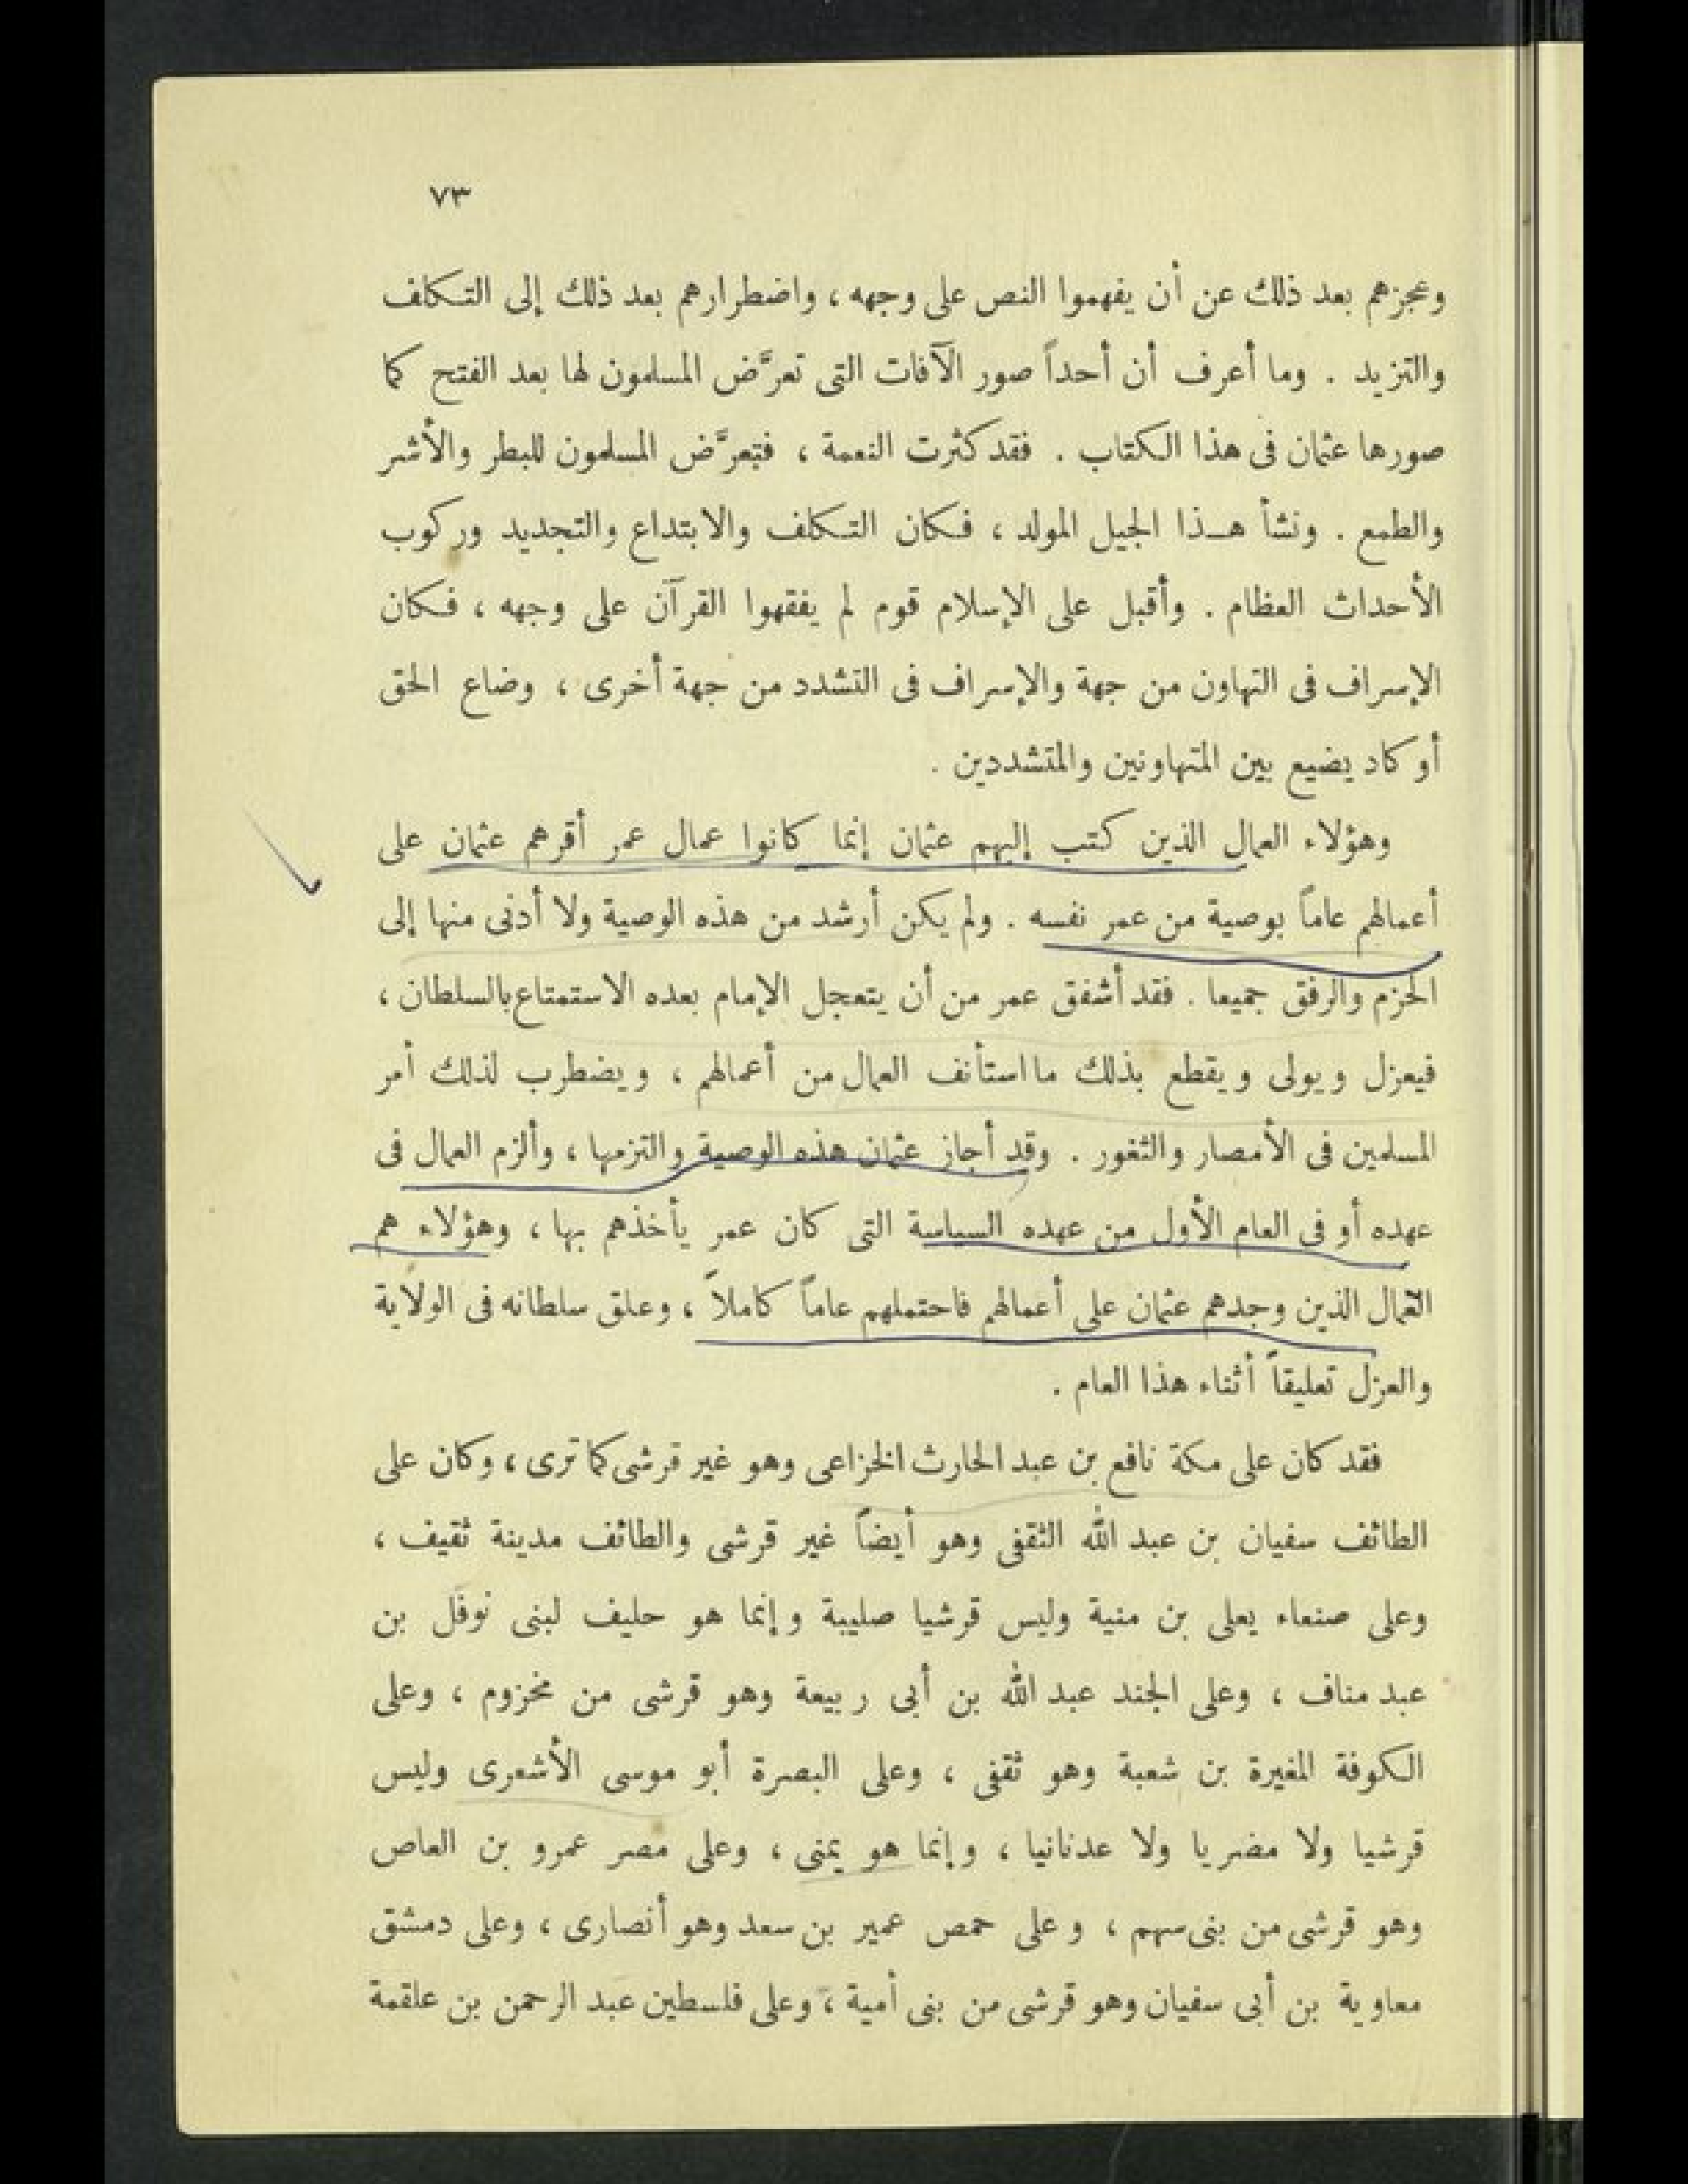 ٧٣
وعجزهم بعد ذلك عن أن يفهموا النص على وجهه ، واضطرارهم بعد ذلك إلى التكلف
والتزيد . وما أعرف أن أحداً صور الآفات التى تعرَّض المسلمون لها بعد الفتح كما
صورها عثمان فى هذا الكتاب . فقد كثرت النعمة ، فتعرَّض المسلمون للبطر والأشر
والطمع . ونشأ هـذا الجيل المولد ، فكان التكلف والابتداع والتجديد وركوب
الأحداث العظام . وأقبل على الإسلام قوم لم يفقهوا القرآن على وجهه ، فكان
الإسراف فى التهاون من جهة والإسراف فى التشدد من جهة أخرى ، وضاع الحق
أو كاد يضيع بين المتهاونين والمتشددين .
وهؤلاء العمال الذين كتب إليهم عثمان إنما كانوا عمال عمر أقرهم عثمان على
أعمالهم عاماً بوصية من عمر نفسه . ولم يكن أرشد من هذه الوصية ولا أدنى منها إلى
الحزم والرفق جميعا . فقد أشفق عمر من أن يتعجل الإمام بعده الاستمتاع بالسلطان ،
فيعزل ويولى ويقطع بذلك ما استأنف العمال من أعمالهم ، ويضطرب لذلك أمر
المسلمين فى الأمصار والثغور . وقد أجاز عثمان هذه الوصية والتزمها ، وألزم العمال فى
عهده أو فى العام الأول من عهده السياسة التى كان عمر يأخذهم بها ، وهؤلاء هم
العمال الذين وجدهم عثمان على أعمالهم فاحتملهم عاماً كاملاً ، وعلق سلطانه فى الولاية
والعزل تعليقاً أثناء هذا العام .
فقد كان على مكة نافع بن عبد الحارث الخزاعى وهو غير قرشى كما ترى ، وكان على
الطائف سفيان بن عبد الله الثقفى وهو أيضاً غير قرشى والطائف مدينة ثقيف ،
وعلى صنعاء يعلى بن منية وليس قرشيا صليبة وإنما هو حليف لبنى نوفل بن
عبد مناف ، وعلى الجند عبد الله بن أبى ربيعة وهو قرشى من مخزوم ، وعلى
الكوفة المغيرة بن شعبة وهو ثقفى ، وعلى البصرة أبو موسى الأشعرى وليس
قرشيا ولا مضريا ولا عدنانيا ، وإنما هو يمنى ، وعلى مصر عمرو بن العاص
وهو قرشى من بنى سهم ، وعلى حمص عمير بن سعد وهو أنصارى ، وعلى دمشق
معاوية بن أبى سفيان وهو قرشى من بنى أمية ، وعلى فلسطين عبد الرحمن بن علقمة